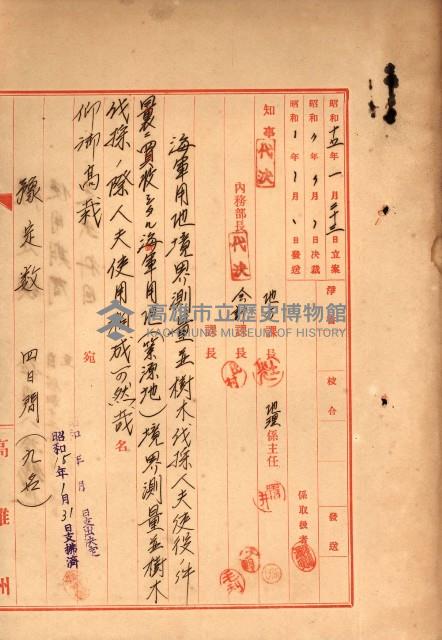 昭和十五年一月三十一日立案
昭和 年 月 日決裁
昭和 年 月 日發送
淨書
校合
發送
知事 代決
內務部長 代決
地 課長
地理係主任
係取扱者
會計課長
課長
海軍用地境界測量並樹木伐採人夫使役ノ件
曩ニ買收シタル海軍用地（ 源地）境界測量並樹木
伐採ノ際人夫使用 成可然哉
仰御高裁
宛
名
豫定數 四日間（九名）
昭和15年1月31日支拂濟
高雄州
高雄市立歷史博物館
KAOHSIUNG MUSEUM OF HISTORY